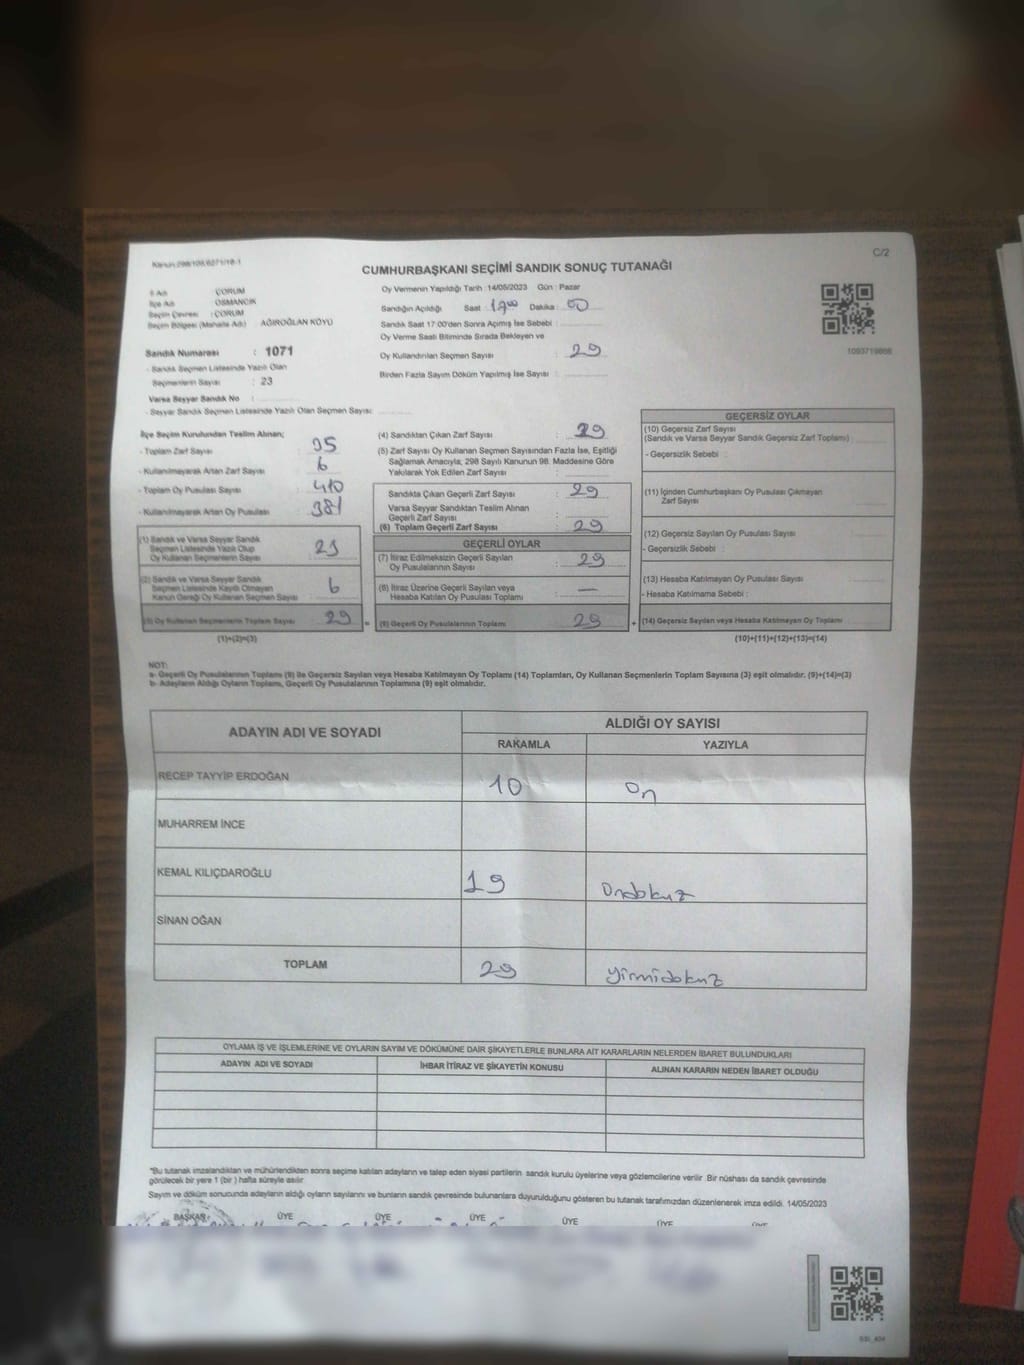 Kanun:298/105,6271/18-1
C/2
CUMHURBAŞKANI SEÇİMİ SANDIK SONUÇ TUTANAĞI
İl Adı : ÇORUM
İlçe Adı : OSMANCIK
Seçim Çevresi : ÇORUM
Seçim Bölgesi (Mahalle Adı) : AĞIROĞLAN KÖYÜ
Sandık Numarası : 1071
- Sandık Seçmen Listesinde Yazılı Olan
Seçmenlerin Sayısı : 23
Varsa Seyyar Sandık No :
- Seyyar Sandık Seçmen Listesinde Yazılı Olan Seçmen Sayısı:
Oy Vermenin Yapıldığı Tarih :14/05/2023 Gün : Pazar
Sandığın Açıldığı Saat : 17.00 Dakika : 00
Sandık Saat 17:00'den Sonra Açılmış İse Sebebi :
Oy Verme Saati Bitiminde Sırada Bekleyen ve
Oy Kullandırılan Seçmen Sayısı : 29
Birden Fazla Sayım Döküm Yapılmış İse Sayısı :
İlçe Seçim Kurulundan Teslim Alınan;
- Toplam Zarf Sayısı : 35
- Kullanılmayarak Artan Zarf Sayısı : 6
- Toplam Oy Pusulası Sayısı : 410
- Kullanılmayarak Artan Oy Pusulası : 381
(1) Sandık ve Varsa Seyyar Sandık
Seçmen Listesinde Yazılı Olup
Oy Kullanan Seçmenlerin Sayısı : 23
(2) Sandık ve Varsa Seyyar Sandık
Seçmen Listesinde Kayıtlı Olmayan
Kanun Gereği Oy Kullanan Seçmen Sayısı : 6
(3) Oy Kullanan Seçmenlerin Toplam Sayısı : 29
(1)+(2)=(3)
(4) Sandıktan Çıkan Zarf Sayısı : 29
(5) Zarf Sayısı Oy Kullanan Seçmen Sayısından Fazla İse, Eşitliği
Sağlamak Amacıyla, 298 Sayılı Kanunun 98. Maddesine Göre
Yakılarak Yok Edilen Zarf Sayısı :
Sandıkta Çıkan Geçerli Zarf Sayısı : 29
Varsa Seyyar Sandıktan Teslim Alınan
Geçerli Zarf Sayısı :
(6) Toplam Geçerli Zarf Sayısı : 29
GEÇERLİ OYLAR
(7) İtiraz Edilmeksizin Geçerli Sayılan
Oy Pusulalarının Sayısı : 29
(8) İtiraz Üzerine Geçerli Sayılan veya
Hesaba Katılan Oy Pusulası Toplamı : —
(9) Geçerli Oy Pusulalarının Toplamı : 29
GEÇERSİZ OYLAR
(10) Geçersiz Zarf Sayısı
(Sandık ve Varsa Seyyar Sandık Geçersiz Zarf Toplamı) :
- Geçersizlik Sebebi :
(11) İçinden Cumhurbaşkanı Oy Pusulası Çıkmayan
Zarf Sayısı :
(12) Geçersiz Sayılan Oy Pusulası Sayısı :
- Geçersizlik Sebebi :
(13) Hesaba Katılmayan Oy Pusulası Sayısı :
- Hesaba Katılmama Sebebi :
(14) Geçersiz Sayılan veya Hesaba Katılmayan Oy Toplamı :
(10)+(11)+(12)+(13)=(14)
NOT:
a- Geçerli Oy Pusulalarının Toplamı (9) ile Geçersiz Sayılan veya Hesaba Katılmayan Oy Toplamı (14) Toplamları, Oy Kullanan Seçmenlerin Toplam Sayısına (3) eşit olmalıdır. (9)+(14)=(3)
b- Adayların Aldığı Oyların Toplamı, Geçerli Oy Pusulalarının Toplamına (9) eşit olmalıdır.
ADAYIN ADI VE SOYADI
ALDIĞI OY SAYISI
RAKAMLA YAZIYLA
RECEP TAYYİP ERDOĞAN 10 On
MUHARREM İNCE
KEMAL KILIÇDAROĞLU 19 Ondokuz
SİNAN OĞAN
TOPLAM 29 Yirmidokuz
OYLAMA İŞ VE İŞLEMLERİNE VE OYLARIN SAYIM VE DÖKÜMÜNE DAİR ŞİKAYETLERLE BUNLARA AİT KARARLARIN NELERDEN İBARET BULUNDUKLARI
ADAYIN ADI VE SOYADI İHBAR İTİRAZ VE ŞİKAYETİN KONUSU ALINAN KARARIN NEDEN İBARET OLDUĞU
"Bu tutanak imzalandıktan ve mühürlendikten sonra seçime katılan adayların ve talep eden siyasi partilerin sandık kurulu üyelerine veya gözlemcilerine verilir. Bir nüshası da sandık çevresinde
görülecek bir yere 1 (bir) hafta süreyle asılır.
Sayım ve döküm sonucunda adayların aldığı oyların sayılarını ve bunların sandık çevresinde bulunanlara duyurulduğunu gösteren bu tutanak tarafımızdan düzenlenerek imza edildi. 14/05/2023
BAŞKAN ÜYE ÜYE ÜYE ÜYE ÜYE ÜYE